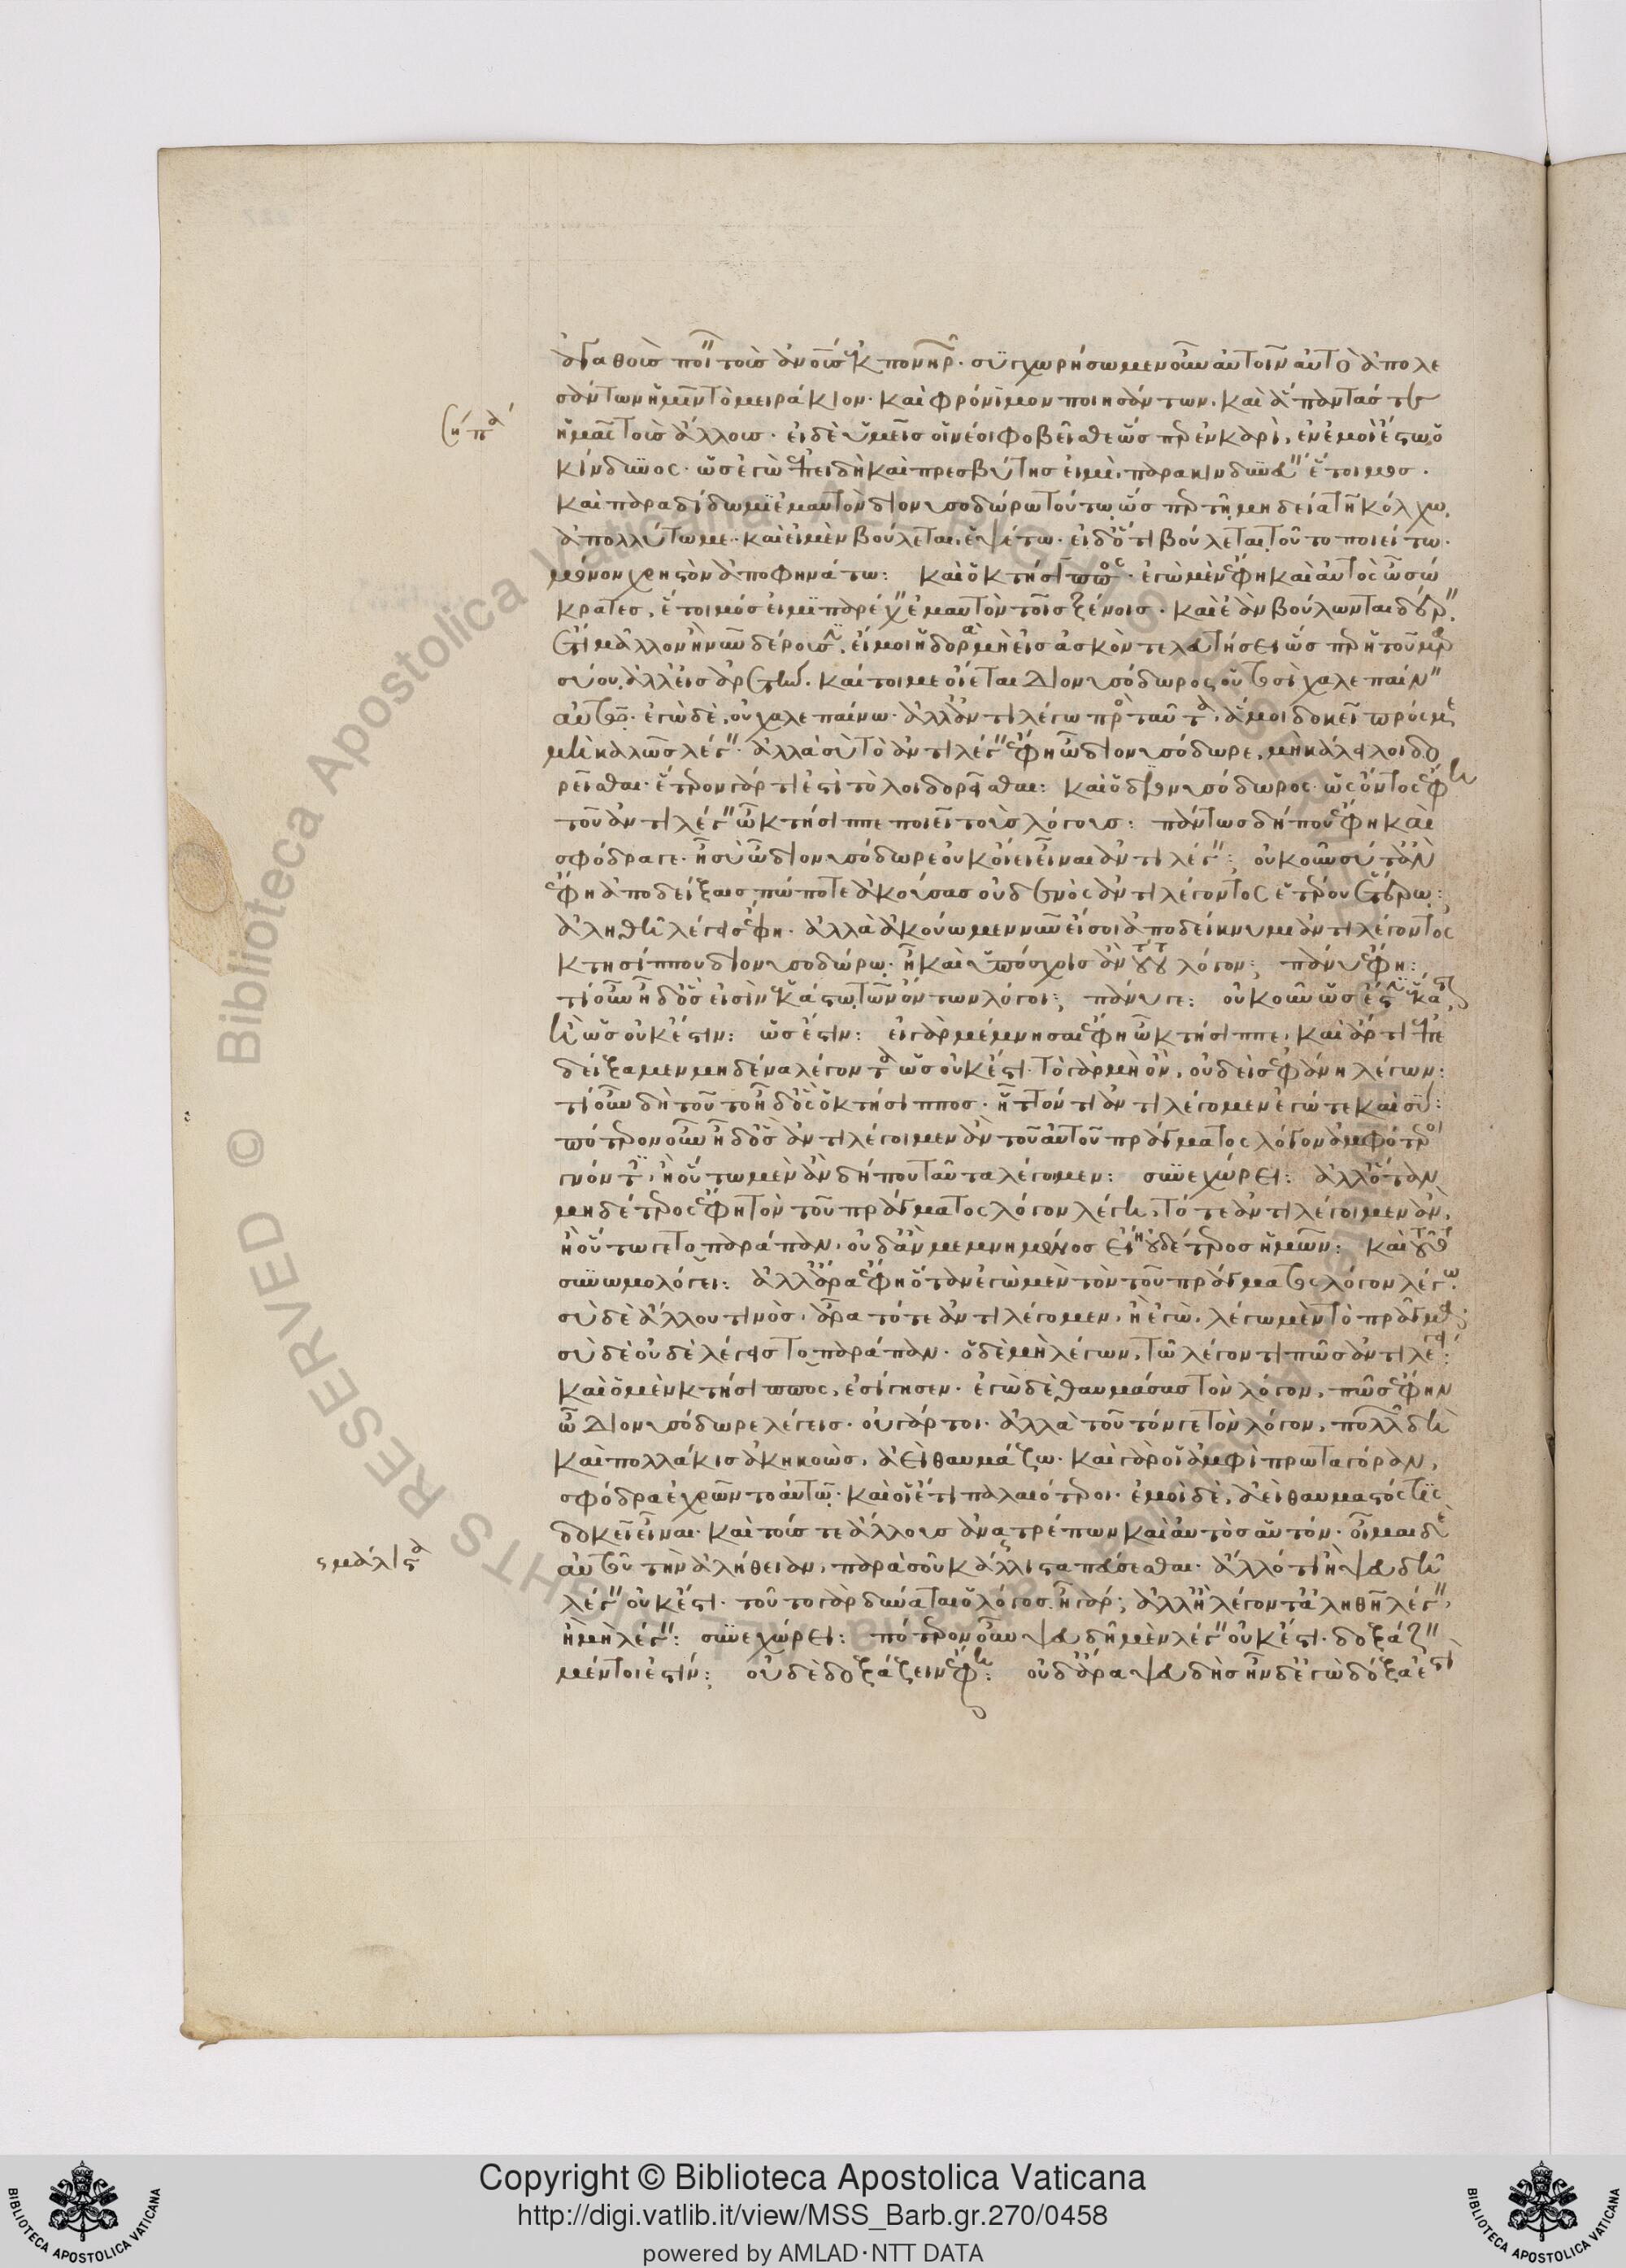 ἀγαθοὺς ποιεῖν τοὺς ἀνοὺς ἐκ πονηρῶν· συγχωρήσωμεν οὖν αὐτοῖν αὐτό ἀπολε
σάντων ἡμῖν τὸ μειράκιον· καὶ φρόνιμον ποιησάντων. καὶ ἅπαντάς γε
ἡμᾶς τοὺς ἄλλους· εἰ δὲ ὑμεῖς οἱ νέοι φοβεῖσθε ὥσπερ ἐν καρὶ, ἐν ἐμοὶ ἔστω ὁ
κίνδυνος· ὡς ἐγὼ ἐπειδὴ καὶ πρεσβύτης εἰμὶ, παρακινδυνεύειν ἕτοιμος.
καὶ παραδίδωμι ἐμαυτὸν διονυσοδώρῳ τούτῳ ὥσπερ τῇ μηδείᾳ τῇ κόλχῳ,
ἀπολλύτω με· καὶ εἰ μὲν βούλεται, ἑψέτω· εἰ δ' ὅτι βούλεται, τοῦτο ποιείτω.
μόνον χρηστὸν ἀποφηνάτω: καὶ ὁ κτήσιππος· ἐγὼ μὲν ἔφη καὶ αὐτὸς ὦ σώ
κρατες, ἕτοιμός εἰμι παρέχειν ἐμαυτὸν τοῖς ξένοις. καὶ ἐὰν βούλωνται δέρειν,
ἔτι μᾶλλον ἢ νῦν δέρουσιν, εἴ μοι ἡ δορὰ μὴ εἰς ἀσκὸν τελευτήσει ὥσπερ ἡ τοῦ μαρ
σύου, ἀλλ' εἰς ἀρετήν. καίτοι με οἴεται Διονυσόδωρος οὑτοσὶ χαλεπαίνειν
αὐτῷ· ἐγὼ δὲ, οὐ χαλεπαίνω· ἀλλ' ἀντιλέγω πρὸς ταῦτα, ἅ μοι δοκεῖ πρός με
μὴ καλῶς λέγειν· ἀλλὰ σὺ τὸ ἀντιλέγειν ἔφη ὦ διονυσόδωρε, μὴ κάλει λοιδο
ρεῖσθαι· ἕτερον γάρ τί ἐστι τὸ λοιδορεῖσθαι: καὶ ὁ διονυσόδωρος· ὡς ὄντος ἔφη
τοῦ ἀντιλέγειν ὦ κτήσιππε ποιεῖ τοὺς λόγους: πάντως δήπου ἔφη καὶ
σφόδρα γε· ἢ σὺ ὦ διονυσόδωρε οὐκ οἴει εἶναι ἀντιλέγειν: οὐκοῦν σύ τ' ἂν
ἔφη ἀποδείξαις πώποτε ἀκούσας οὐδενὸς ἀντιλέγοντος ἑτέρου ἑτέρῳ:
ἀληθῆ λέγεις ἔφη· ἀλλὰ ἀκούωμεν νῦν εἴ σοι ἀποδείκνυμι ἀντιλέγοντος
κτησίππου διονυσοδώρῳ· ἦ καὶ ὑπόσχοις ἂν τούτου λόγον; πάνυ ἔφη:
τί οὖν ἦ δ' ὃς εἰσὶν ἑκάστῳ τῶν ὄντων λόγοι; πάνυ γε: οὐκοῦν ὡς ἔστιν ἕκαστον
ἢ ὡς οὐκ ἔστιν: ὡς ἔστιν: εἰ γὰρ μέμνησαι ἔφη ὦ κτήσιππε, καὶ ἄρτι ἐπε
δείξαμεν μηδένα λέγοντα ὡς οὐκ ἔστι· τὸ γὰρ μὴ ὂν, οὐδεὶς ἐφάνη λέγων:
τί οὖν δὴ τοῦτο ἦ δ' ὃς ὁ κτήσιππος· ἧττόν τι ἀντιλέγομεν ἐγώ τε καὶ σύ:
πότερον οὖν ἦ δ' ὃς ἀντιλέγοιμεν ἂν τοῦ αὐτοῦ πράγματος λόγον ἀμφότεροι
γνόντες, ἢ οὕτω μὲν ἂν δήπου ταῦτα λέγοιμεν: συνεχώρει: ἀλλ' ὅταν
μηδέτερος ἔφη τὸν τοῦ πράγματος λόγον λέγῃ, τότε ἀντιλέγοιμεν ἂν,
ἢ οὕτω γε τὸ παράπαν, οὐδ' ἂν μεμνημένος εἴη οὐδέτερος ἡμῶν: καὶ τοῦτο
συνωμολόγει: ἀλλ' ἄρα ἔφη ὅταν ἐγὼ μὲν τὸν τοῦ πράγματος λόγον λέγω,
σὺ δὲ ἄλλου τινὸς, ἆρα τότε ἀντιλέγομεν, ἢ ἐγὼ, λέγω μὲν τὸ πρᾶγμα,
σὺ δὲ οὐδὲ λέγεις τὸ παράπαν· ὁ δὲ μὴ λέγων, τῷ λέγοντι πῶς ἀντιλέγει:
καὶ ὁ μὲν κτήσιππος, ἐσίγησεν· ἐγὼ δὲ θαυμάσας τὸν λόγον, πῶς ἔφην
ὦ Διονυσόδωρε λέγεις· οὐ γάρ τοι· ἀλλὰ τοῦτόν γε τὸν λόγον, πολλῶν δὴ
καὶ πολλάκις ἀκηκοὼς, ἀεὶ θαυμάζω· καὶ γὰρ οἱ ἀμφὶ πρωταγόραν,
σφόδρα ἐχρῶντο αὐτῷ· καὶ οἱ ἔτι παλαιότεροι· ἐμοὶ δὲ, ἀεὶ θαυμαστός τις
δοκεῖ εἶναι· καὶ τούς τε ἄλλους ἀνατρέπων καὶ αὐτὸς αὑτόν· οἶμαι δὲ
αὐτοῦ τὴν ἀλήθειαν, παρὰ σοῦ κάλλιστα πεύσεσθαι· ἄλλό τι ἢ ψευδῆ
λέγειν οὐκ ἔστι· τοῦτο γὰρ δύναται ὁ λόγος. ἦ γάρ; ἀλλ' ἢ λέγοντ' ἀληθῆ λέγειν,
ἢ μὴ λέγειν: συνεχώρει: πότερον οὖν ψευδῆ μὲν λέγειν οὐκ ἔστι· δοξάζειν
μέντοι ἔστιν; οὐδὲ δοξάζειν ἔφη: οὐδ' ἄρα ψευδὴς ἦν δ' ἐγὼ δόξα ἐστὶ
ς μάλιστα